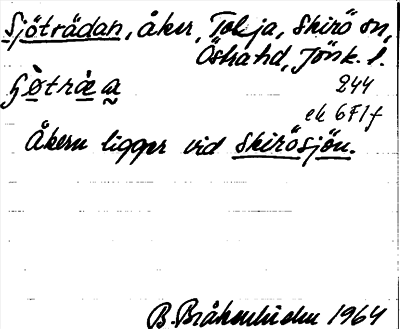 Sjöträdan, åker, Tolja, Skirö sn,
Östra hd, Jönk. l.
244
ek 6F1f
Åkern ligger vid Skirösjön.
1964